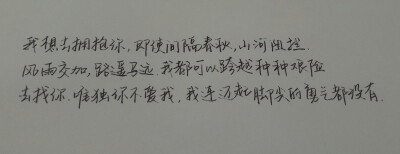 我想去拥抱你,即使间隔春秋,山河阻拦.
风雨交加,路遥马远.我都可以跨越种种艰险
去找你.唯独你不爱我,我连迈起脚尖的勇气都没有.